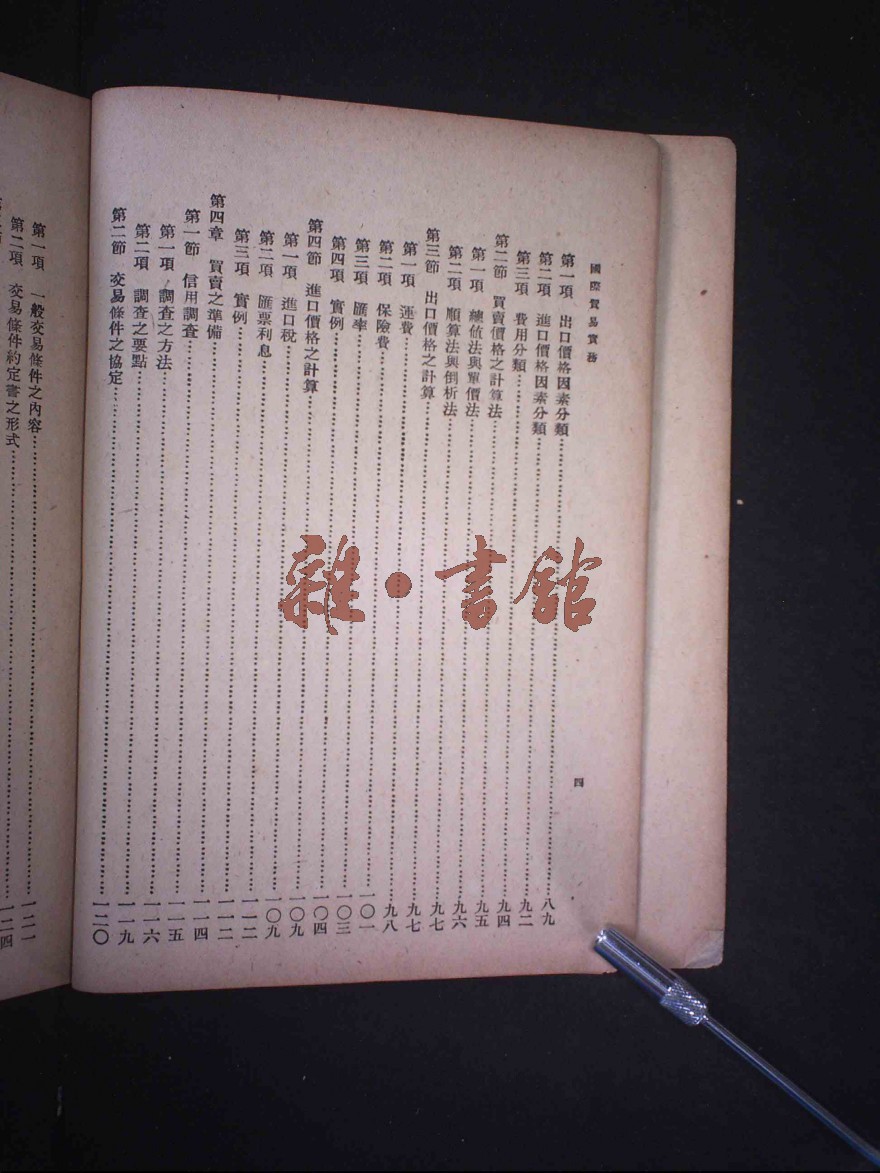 國際貿易實務
四
第一項 出口價格因素分類……八九
第二項 進口價格因素分類……九二
第三項 費用分類……九四
第二節 買賣價格之計算法……九五
第一項 總值法與單價法……九六
第二項 順算法與倒析法……九七
第三節 出口價格之計算……九七
第一項 運費……九八
第二項 保險費……一〇一
第三項 匯率……一〇三
第四項 實例……一〇四
第四節 進口價格之計算……一〇九
第一項 進口稅……一〇九
第二項 匯票利息……一一二
第三項 實例……一一二
第四章 買賣之準備……一一四
第一節 信用調查……一一五
第一項 調查之方法……一一六
第二項 調查之要點……一一九
第二節 交易條件之協定……一二〇
第一項 一般交易條件之內容……一二一
第二項 交易條件約定書之形式……一二四
雜·書館